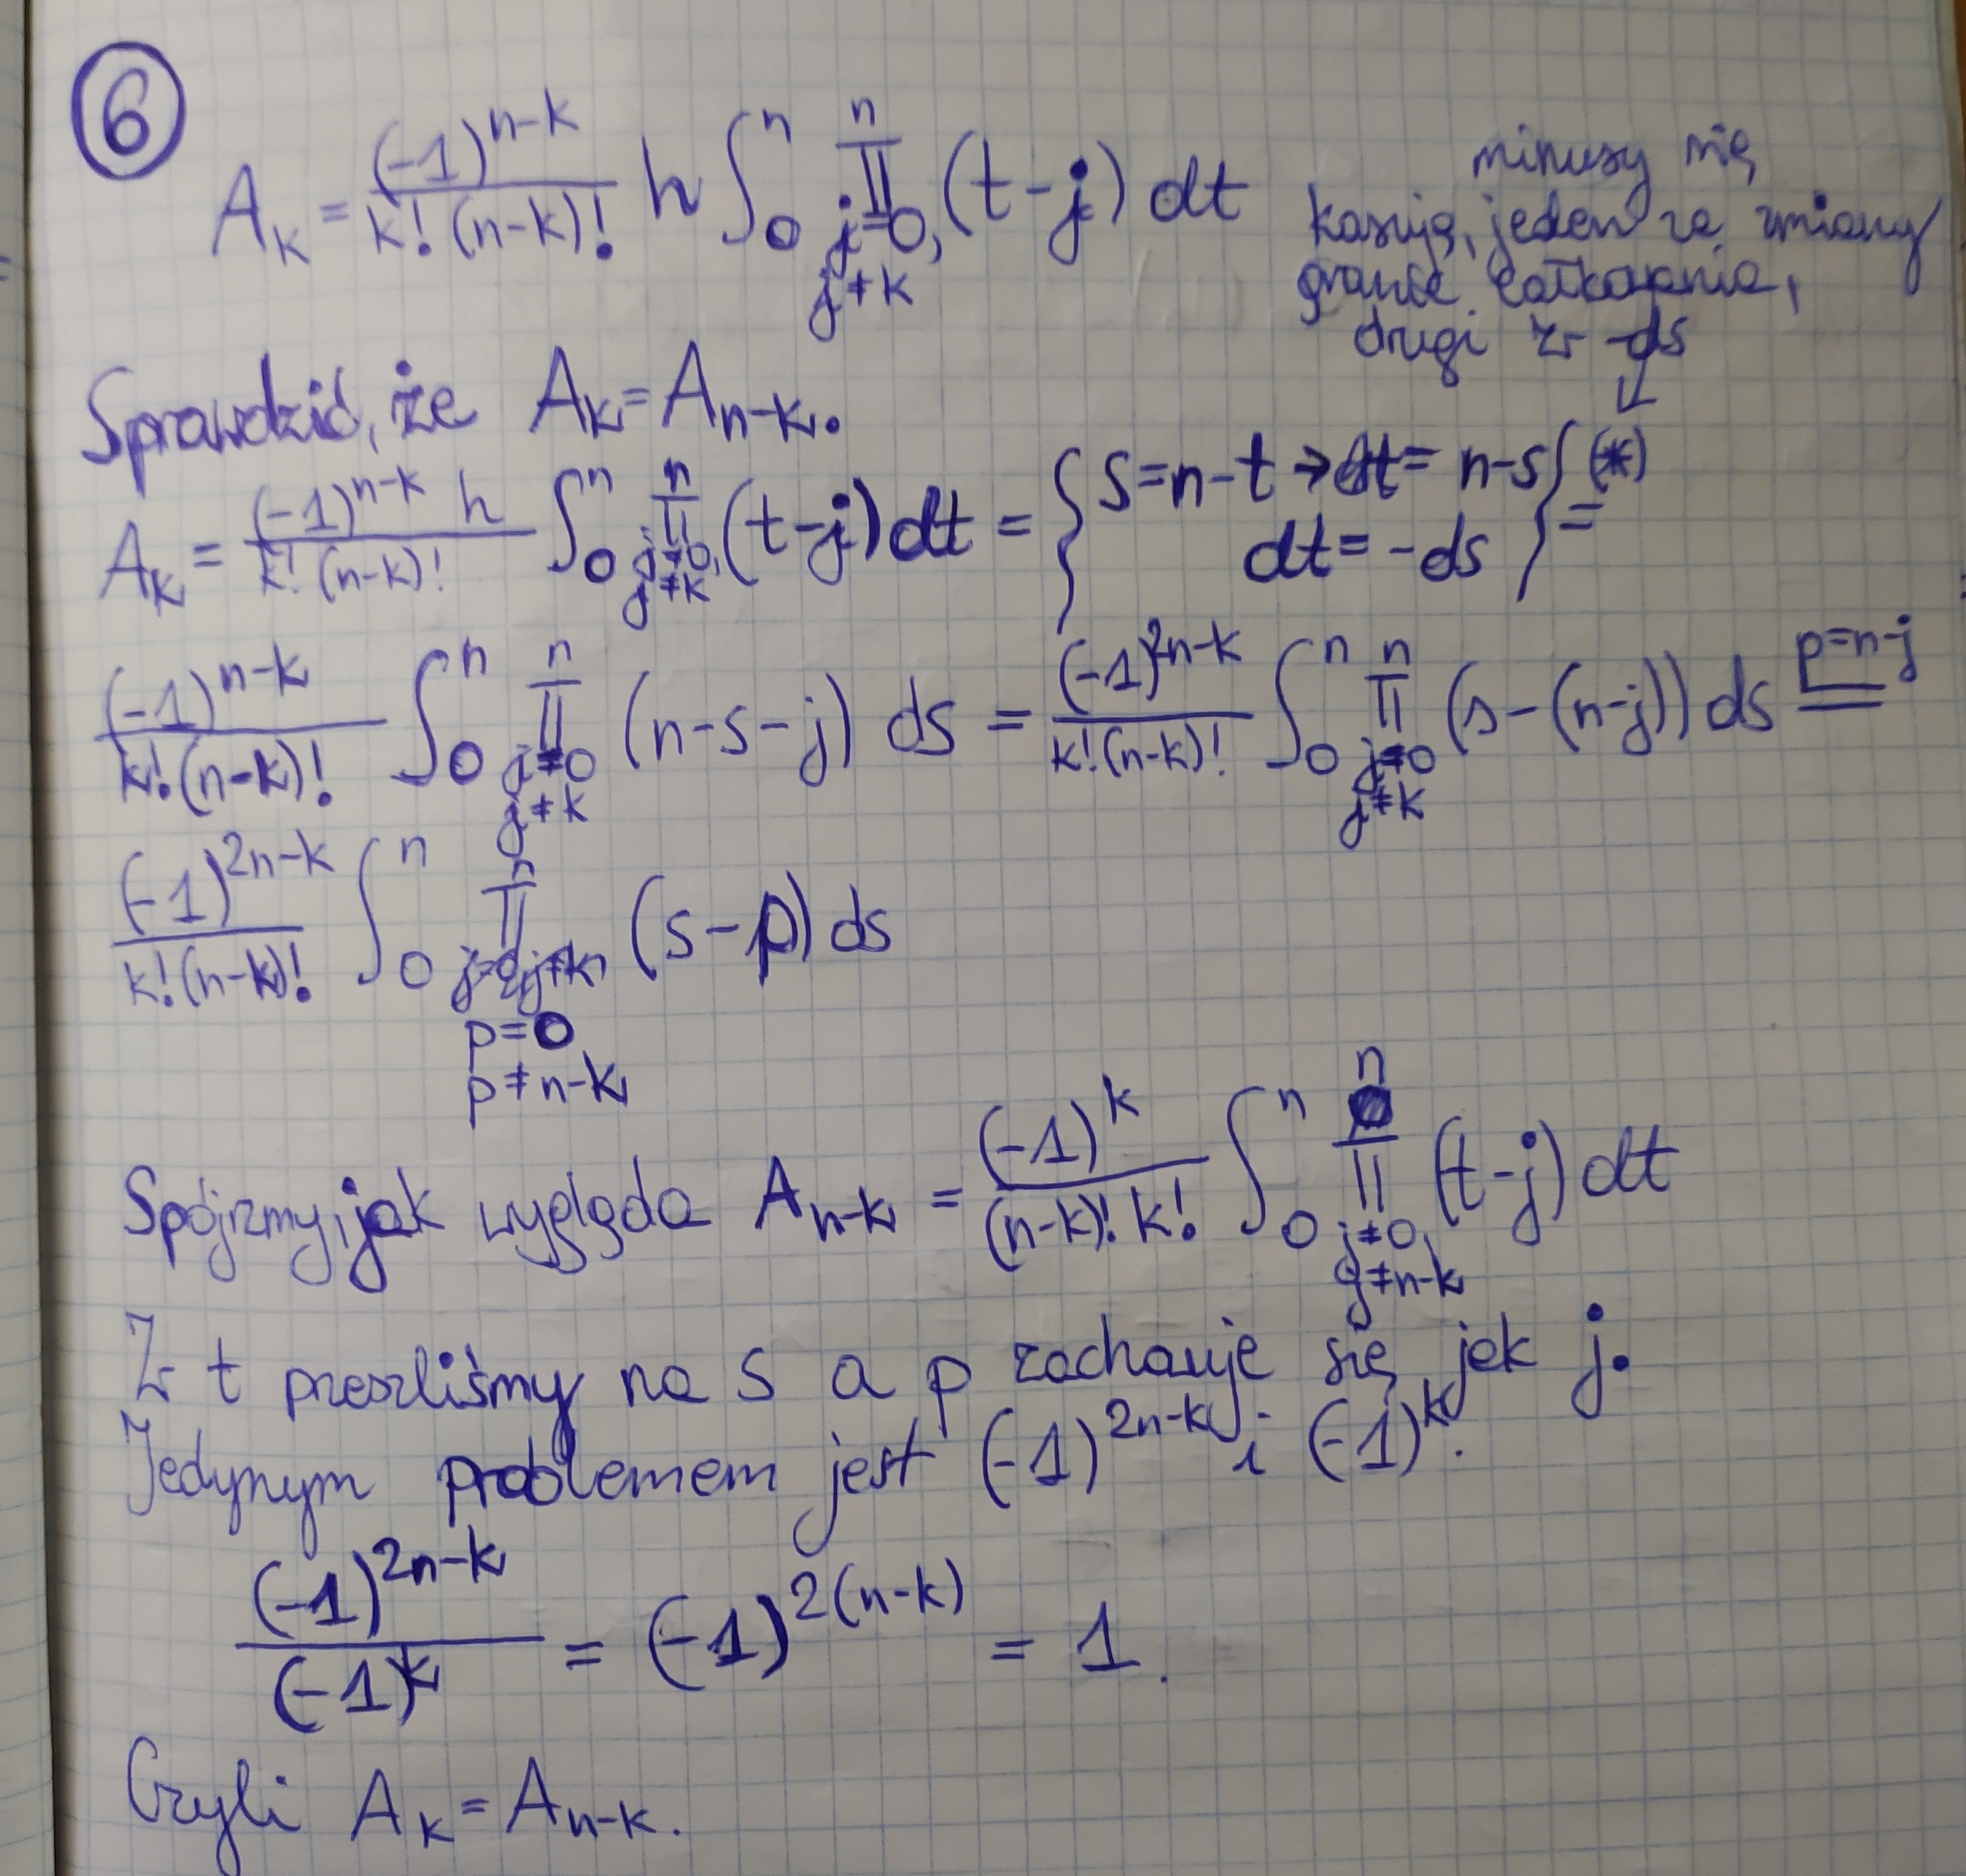 6
A_k = (-1)^{n-k} / k! (n-k)! h ∫_0^n ∏_{j=0, j≠k}^n (t-j) dt
minusy się
kasują, jeden ze zmiany
granic całkowania,
drugi z -ds
Sprawdzić, że A_k = A_{n-k}.
A_k = (-1)^{n-k} h / k! (n-k)! ∫_0^n ∏_{j≠0, j≠k}^n (t-j) dt = { s = n-t → t = n-s, dt = -ds } (*) =
(-1)^{n-k} / k! (n-k)! ∫_0^n ∏_{j≠0, j≠k}^n (n-s-j) ds = (-1)^{2n-k} / k! (n-k)! ∫_0^n ∏_{j≠0, j≠k}^n (s-(n-j)) ds = p=n-j
(-1)^{2n-k} / k! (n-k)! ∫_0^n ∏_{p=0, p≠n-k}^n (s-p) ds
Spójrzmy, jak wygląda A_{n-k} = (-1)^k / (n-k)! k! ∫_0^n ∏_{j≠0, j≠n-k}^n (t-j) dt
Z t przeszliśmy na s a p zachowuje się jak j.
Jedynym problemem jest (-1)^{2n-k} i (-1)^k.
(-1)^{2n-k} / (-1)^k = (-1)^{2(n-k)} = 1.
Czyli A_k = A_{n-k}.